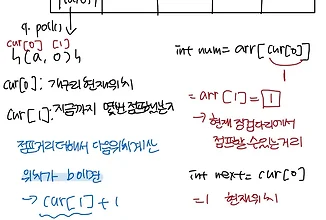 q. poll()
cur[0] [1]
{a, 0}
cur[0]: 개구리 현재위치
cur[1]: 지금까지 몇번 점프했는지
점프거리 더해서 다음위치계산
위치가 b이면
→ cur[1] + 1
int num = arr[cur[0]]
1
= arr[1] = 1
→ 현재 징검다리에서
점프할 수 있는 거리
int next = cur[0]
=1 현재위치